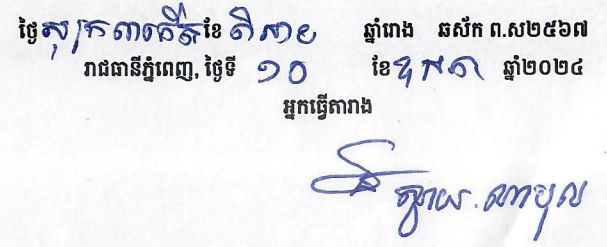 ថ្ងៃសុក្រ ៣កើត ខែ ពិសាខ ឆ្នាំរោង ឆស័ក ព.ស២៥៦៧
រាជធានីភ្នំពេញ, ថ្ងៃទី ១០ ខែ ឧសភា ឆ្នាំ២០២៤
អ្នកធ្វើតារាង
ស្វាយ. ណាបុល